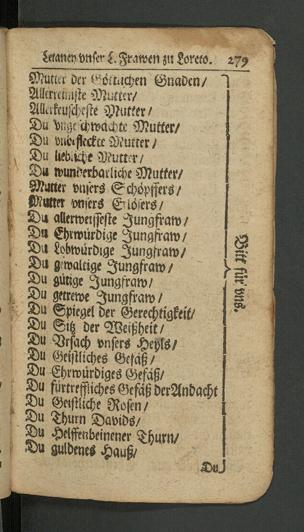 Letaney vnser L. Frawen zu Loreto. 279
Mutter der Göttlichen Gnaden/
Allerreinste Mutter/
Allerkeuscheste Mutter/
Du vngeschwächte Mutter/
Du vnbefleckte Mutter/
Du liebliche Mutter/
Du wunderbarliche Mutter/
Mutter vnsers Schöpffers/
Mutter vnsers Erlösers/
Du allerweiseste Jungfraw/
Du Ehrwürdige Jungfraw/
Du Lobwürdige Jungfraw/
Du gewaltige Jungfraw/
Du gütige Jungfraw/
Du getrewe Jungfraw/
Du Spiegel der Gerechtigkeit/
Du Sitz der Weißheit/
Du Vrsach vnsers Heyls/
Du Geistliches Gefäß/
Du Ehrwürdiges Gefäß/
Du fürtreffliches Gefäß der Andacht
Du Geistliche Rosen/
Du Thurn Davids/
Du Helffenbeinener Thurn/
Du guldenes Hauß/
Bitt für vns.
Du